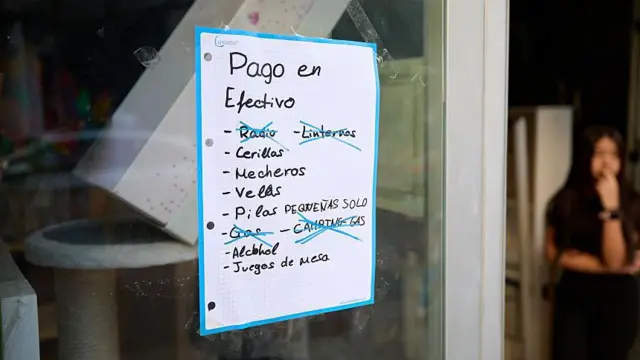 Pago en
Efectivo
- Radio - Linternas
- Cerillas
- Mecheros
- Vellas
- Pilas PEQUEÑAS SOLO
- Gas - CAMPING GAS
- Alcohol
- Juegos de mesa